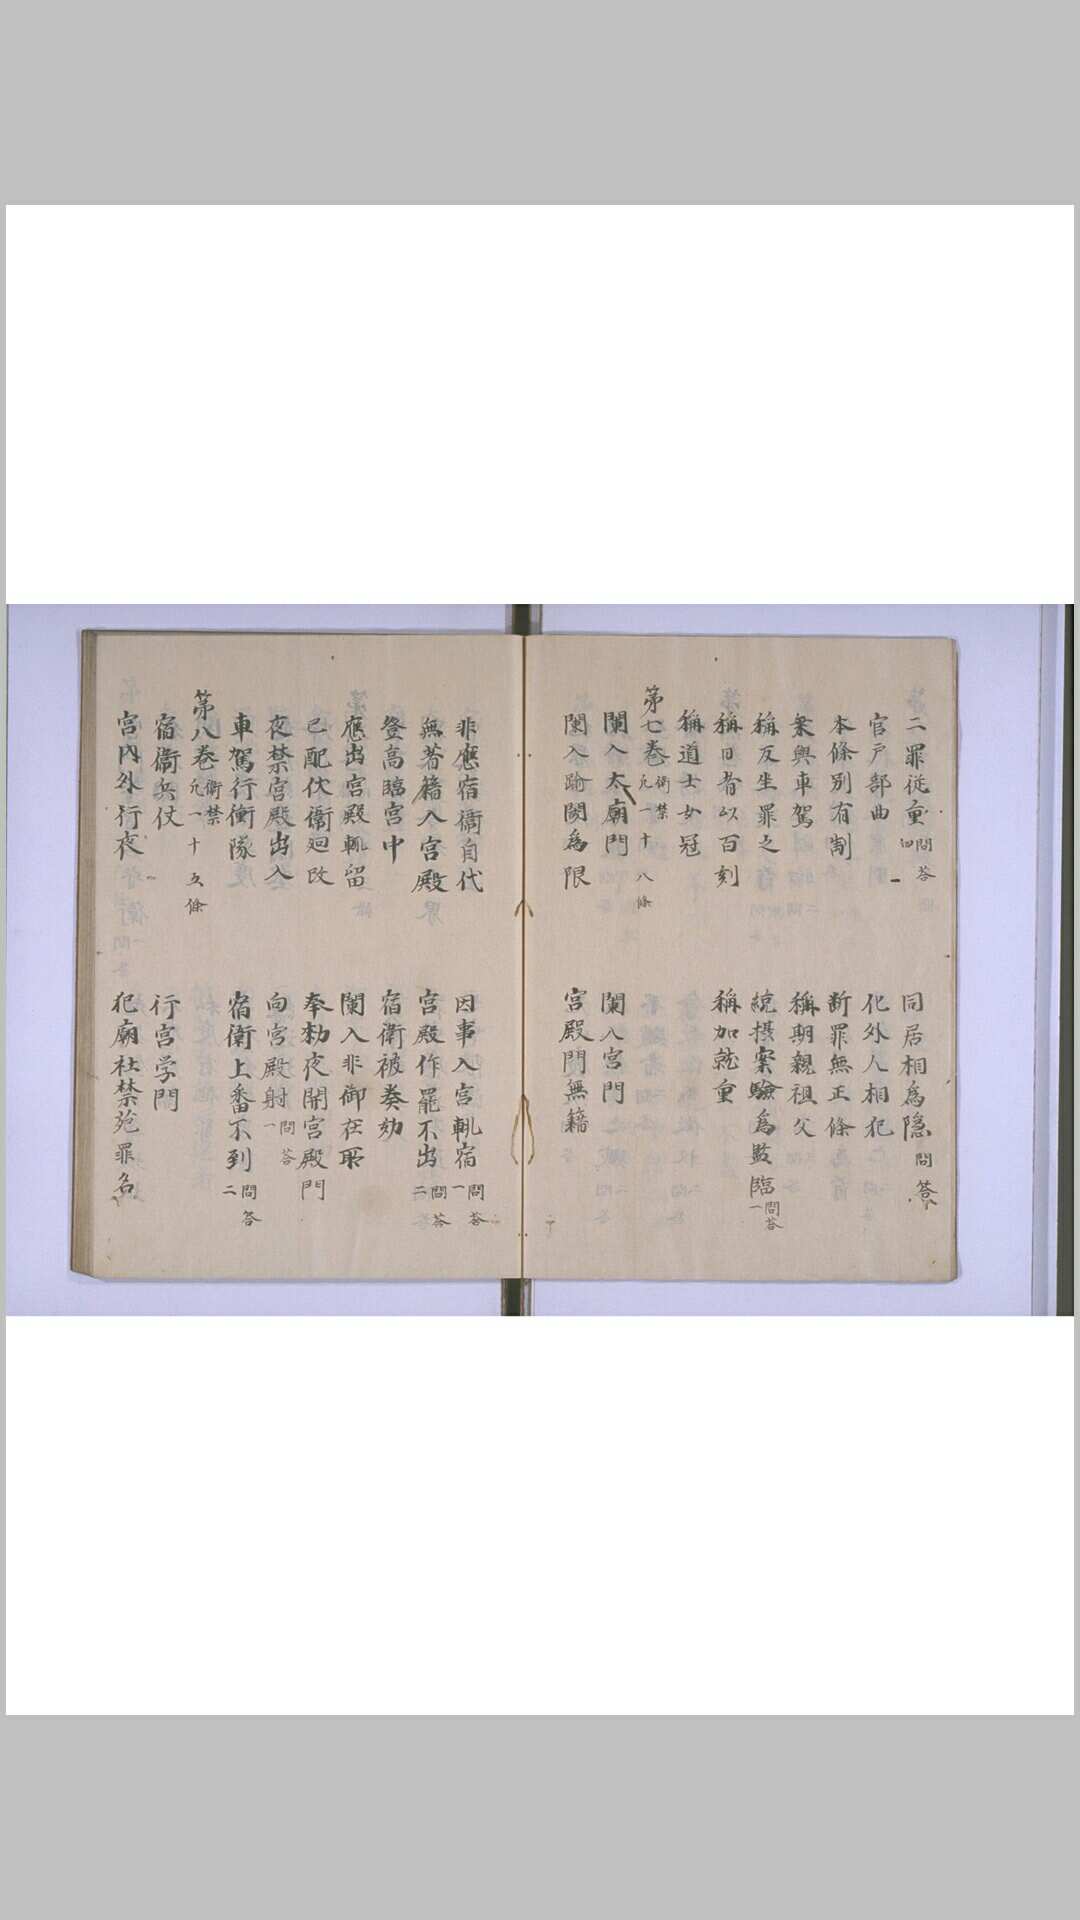 二罪従重 問答四 同居相為隠 問答一
官戸部曲 化外人相犯
本條別有制 断罪無正條
乗輿車駕 稱期親祖父
稱反坐罪之 統摂案驗為監臨 問答一
稱日者以百刻 稱加就重
稱道士女冠
第七巻 衛禁 凡一十八條
闌入太廟門 闌入宮門
闌入踰閾為限 宮殿門無籍
非應宿衛自代 因事入宮輒宿 問答一
無著籍入宮殿 宮殿作罷不出 問答二
登高臨宮中 宿衛被奏劾
應出宮殿輒留 闌入非御在所
已配仗衛廻改 奉勅夜開宮殿門
夜禁宮殿出入 向宮殿射 問答一
車駕行衝隊 宿衛上番不到 問答二
第八巻 衛禁 凡一十五條
宿衛兵仗 行宮学門
宮内外行夜 犯廟社禁苑罪名